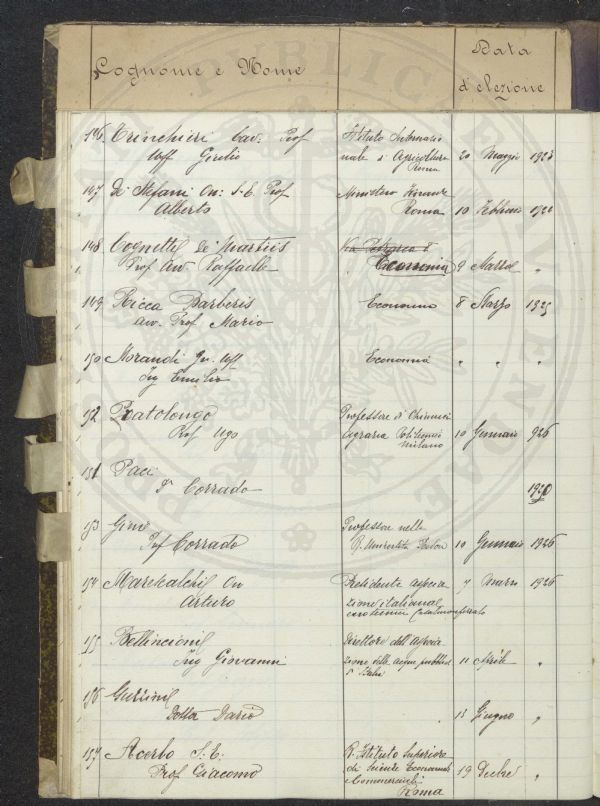 Cognome e Nome
Data
d'elezione
146 Trinchieri Cav. Prof Istituto Internazio
Uff Giulio nale d' Agricoltura 20 Maggio 192
Roma
147 De Stefani On: S.E. Prof Ministero Finanze
Alberto Roma 10 Febbraio 192
148 Cognetti De Martiis Via
Prof Avv Raffaele Economia 9 Marzo "
149 Ricca Barberis Economia 8 Marzo 1925
avv. Prof Mario
150 Morandi Uff Economia " " "
Ing Emilio
152 Pratolongo Professore d' Chimica
Prof Ugo Agraria Politecnico 10 Gennaio 926
Milano
151 Paci
Dr Corrado 1920
153 Gini Professore nella
Prof Corrado R. Università Padova 10 Gennaio 1926
154 Marescalchi On Presidente associa 7 Marzo 1926
Arturo zione italiana
Casalmonferrato
155 Bellincioni Direttore dell' Associa
Ing Giovanni zione delle acque pubbliche 11 Aprile "
d' Italia
156 Gurrini
Dott Dario 13 Giugno "
157 Acerbo S.E. R. Istituto Superiore
Prof Giacomo di Scienze Economiche 19 Dicbre "
Commerciali
Roma